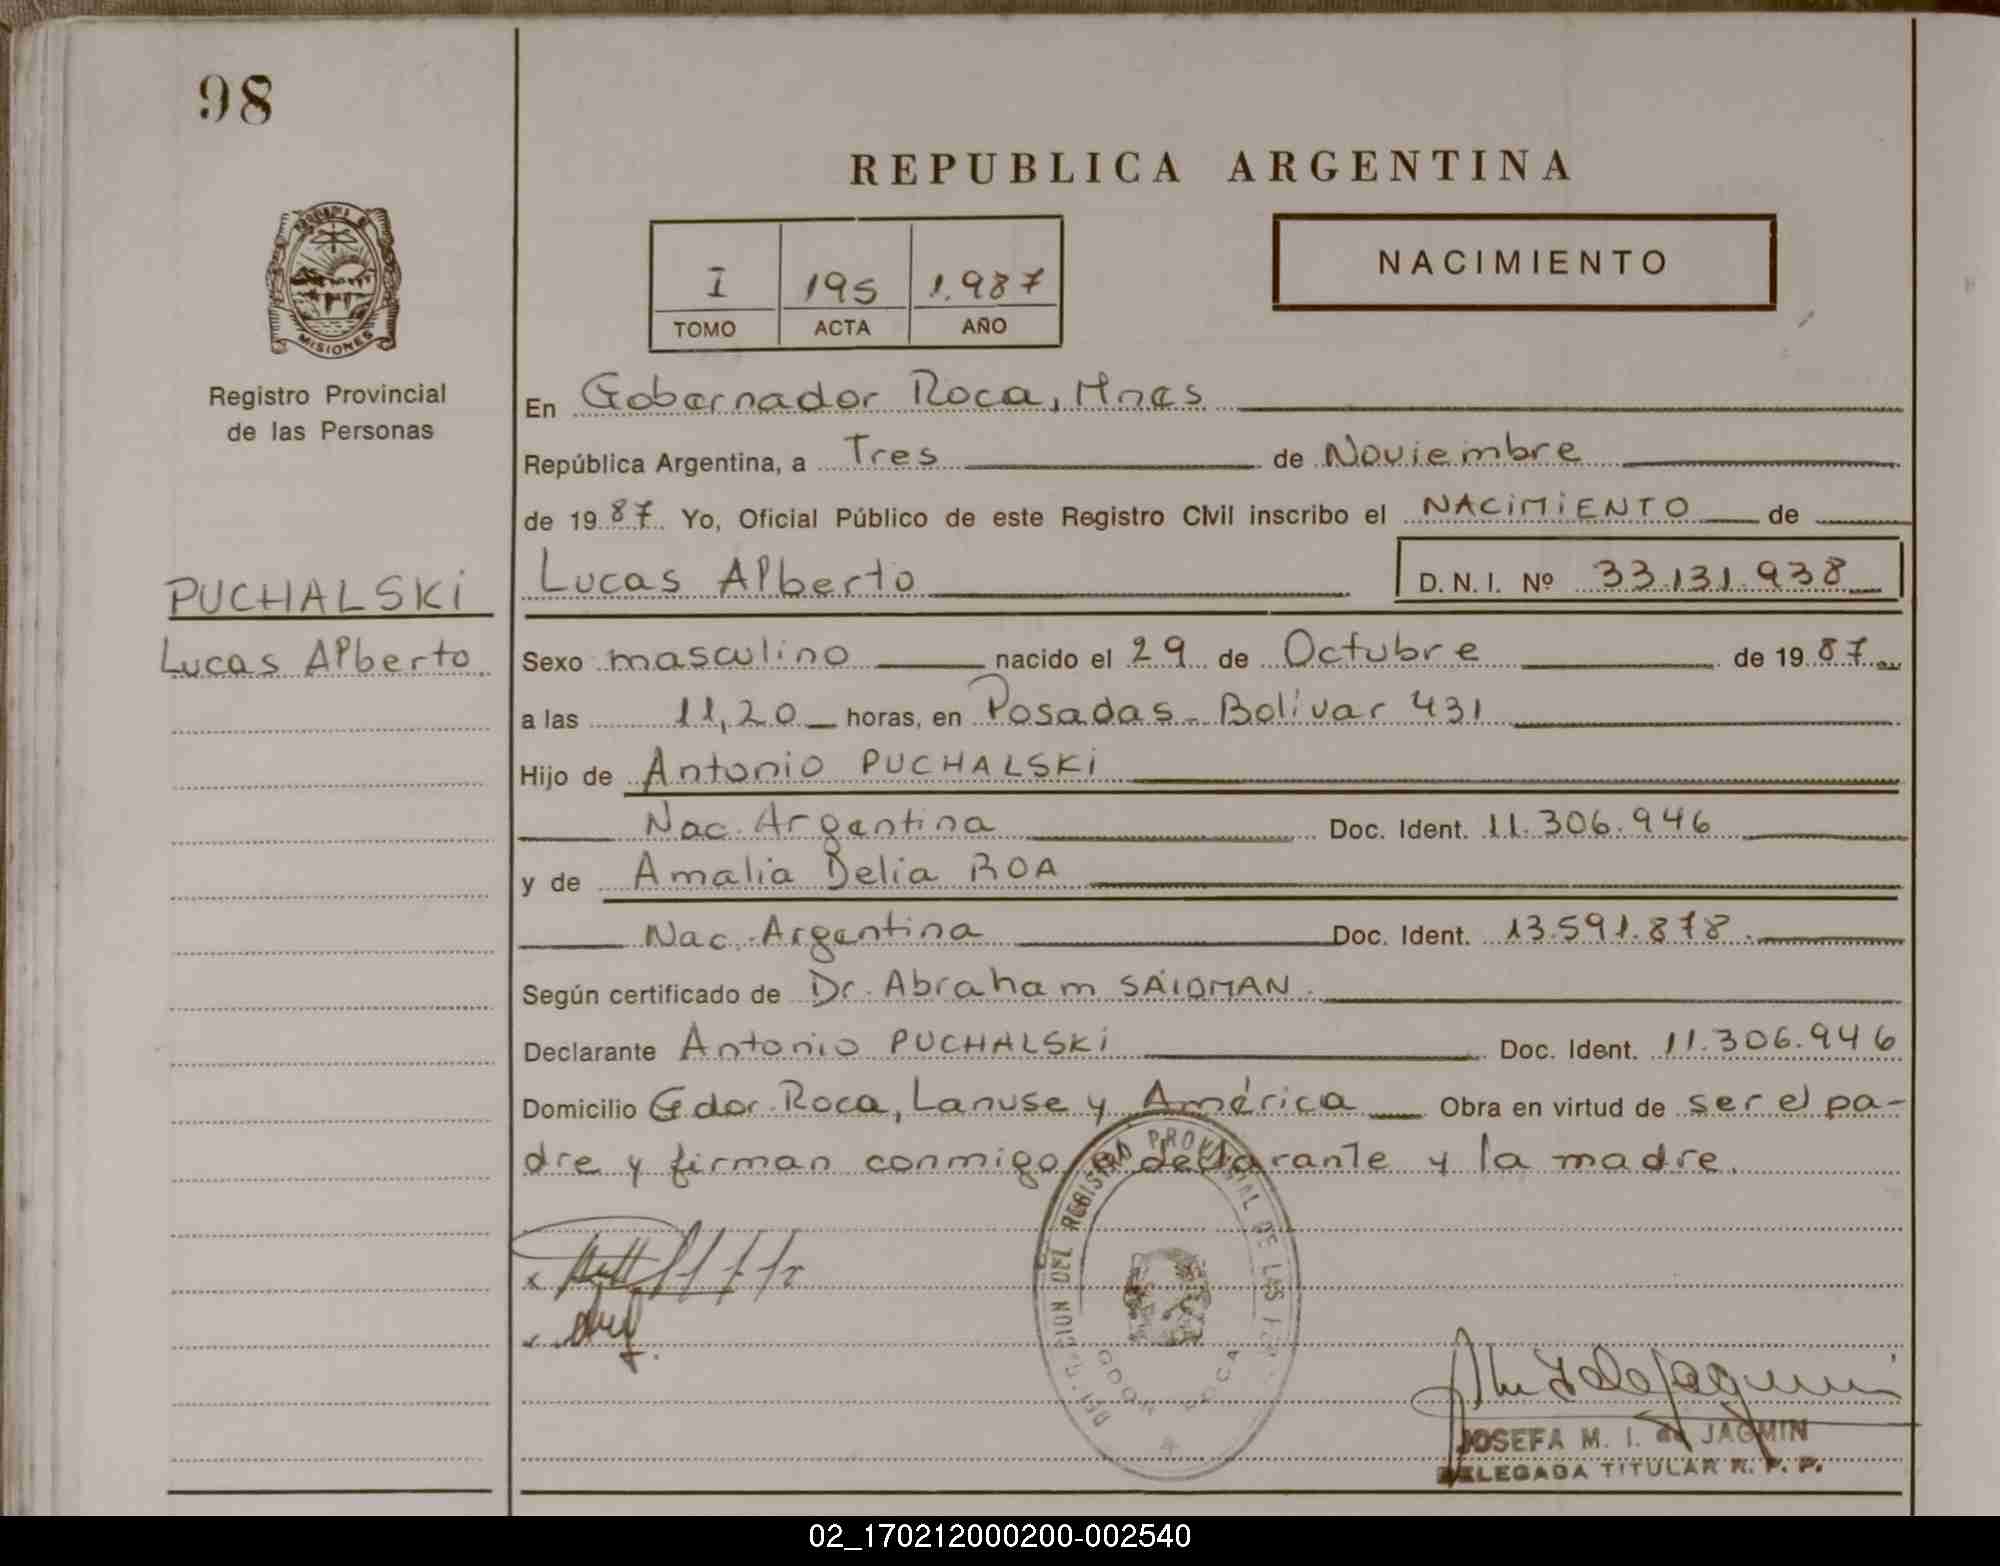 98
REPUBLICA ARGENTINA
I 195 1.987
TOMO ACTA AÑO
NACIMIENTO
MISIONES
Registro Provincial
de las Personas
En Gobernador Roca, Mnes
República Argentina, a Tres de Noviembre
de 1987 Yo, Oficial Público de este Registro Civil inscribo el NACIMIENTO de
PUCHALSKI
Lucas Alberto
Lucas Alberto D.N.I. Nº 33.131.938
Sexo masculino nacido el 29 de Octubre de 1987
a las 11,20 horas, en Posadas - Bolívar 431
Hijo de Antonio PUCHALSKI
Nac. Argentina Doc. Ident. 11.306.946
y de Amalia Delia ROA
Nac. Argentina Doc. Ident. 13.591.878.
Según certificado de Dr. Abraham SAIDMAN.
Declarante Antonio PUCHALSKI Doc. Ident. 11.306.946
Domicilio Gdor. Roca, Lanuse y América Obra en virtud de ser el pa-
dre y firman conmigo el declarante y la madre.
DEL REGISTRO PROVINCIAL DE LAS
JOSEFA M. I. de JAGMIN
DELEGADA TITULAR R. P. P.
02_170212000200-002540